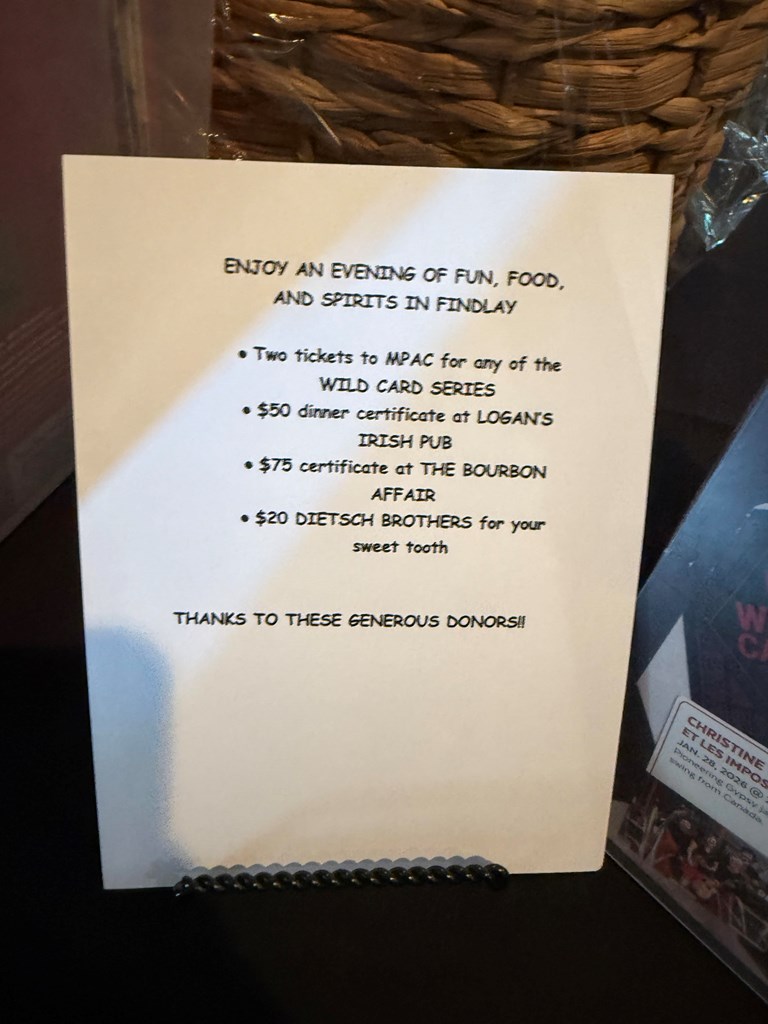 ENJOY AN EVENING OF FUN, FOOD,
AND SPIRITS IN FINDLAY
• Two tickets to MPAC for any of the
WILD CARD SERIES
• $50 dinner certificate at LOGAN'S
IRISH PUB
• $75 certificate at THE BOURBON
AFFAIR
• $20 DIETSCH BROTHERS for your
sweet tooth
THANKS TO THESE GENEROUS DONORS!!
CHRISTINE
ET LES
JAN. 28, 2026 @
Pioneering Gypsy
swing from Canada.